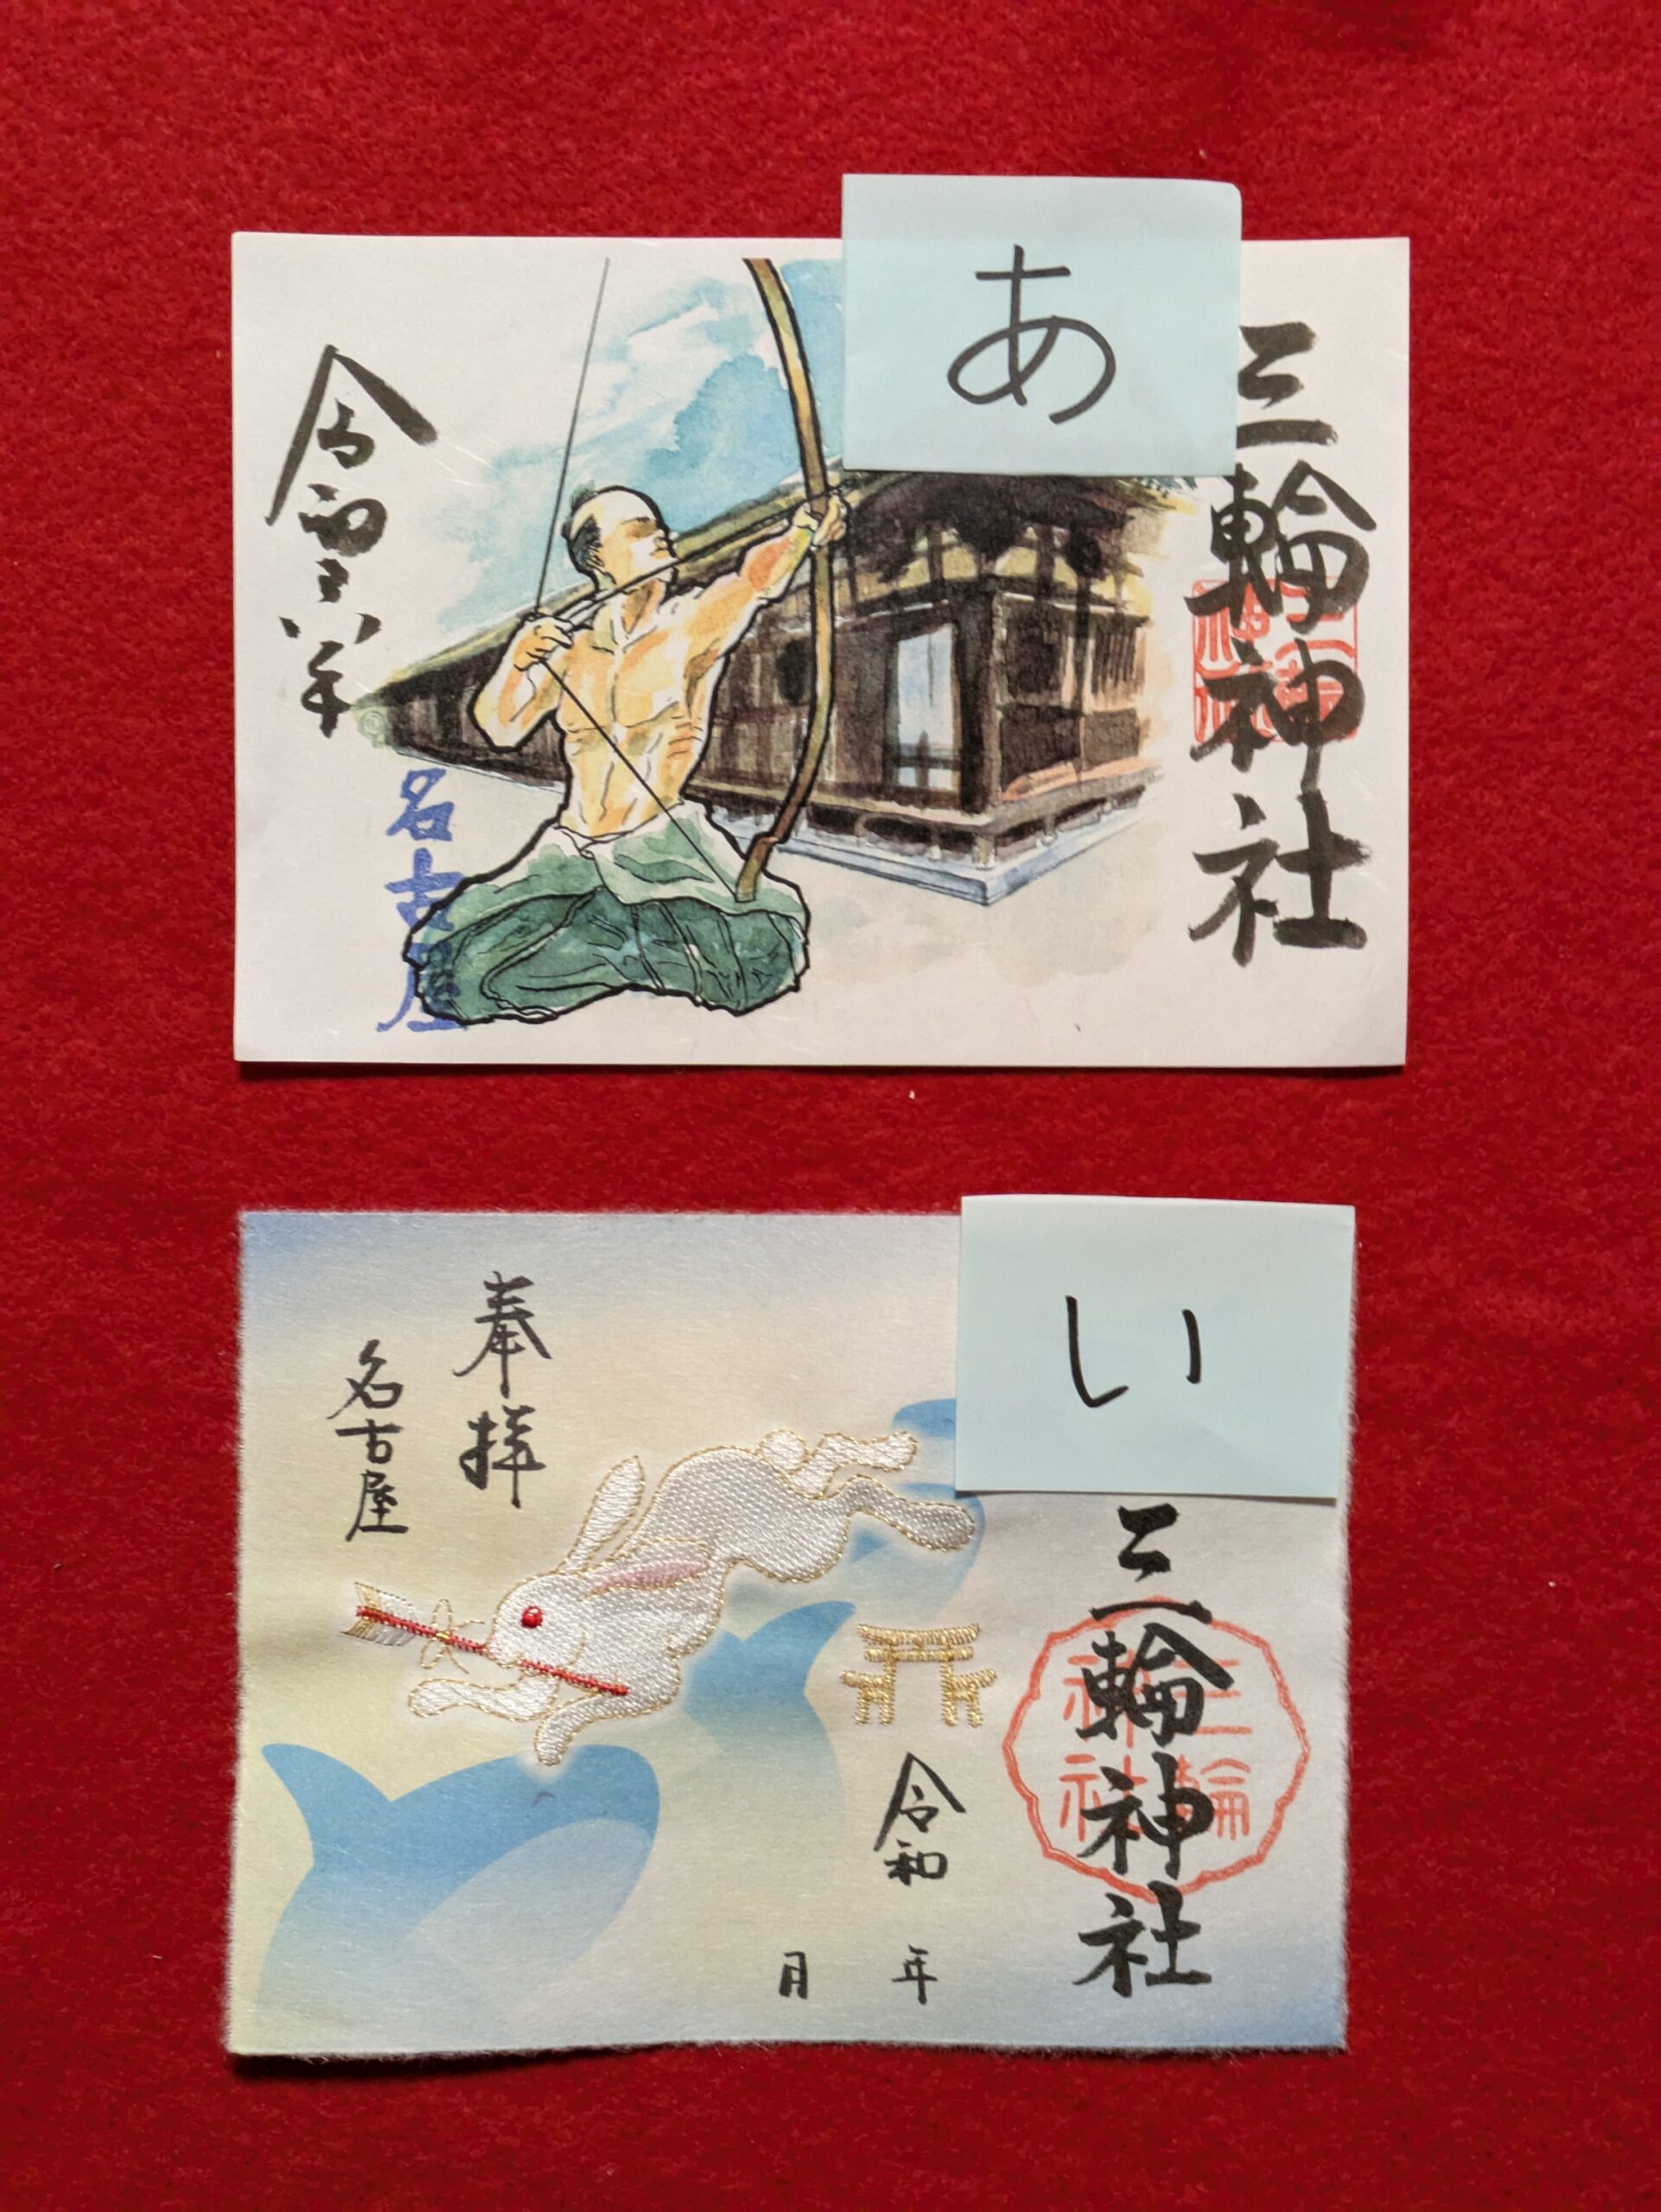 あ
三輪神社
三輪神社
令和 年
名古屋
い
三輪神社
三輪
神社
令和 年
月
奉拝
名古屋